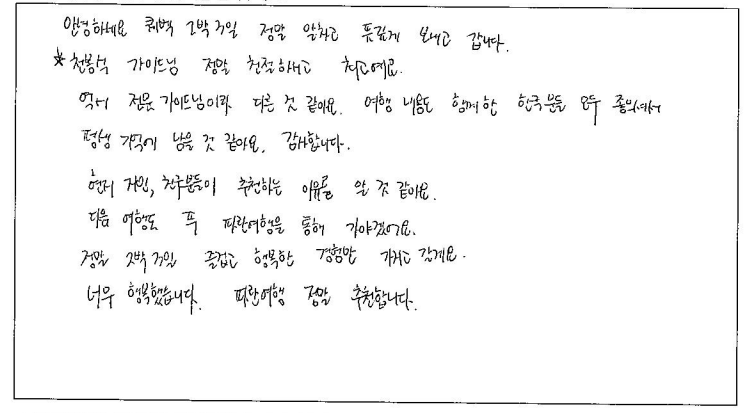 안녕하세요 퀘벡 2박3일 정말 알차고 뜻깊게 보내고 갑니다.
*천봉석 가이드님 정말 친절하시고 최고예요.
역시 전문 가이드님이라 다른 것 같아요. 여행 내용도 함께한 한국분들 모두 좋으셔서
평생 기억에 남을 것 같아요. 감사합니다.
현지 지인, 친구분들이 추천하는 이유를 알 것 같아요.
다음 여행도 꼭 파란여행을 통해 가야겠어요.
정말 2박3일 즐겁고 행복한 경험만 가지고 갈게요.
너무 행복했습니다. 파란여행 정말 추천합니다.